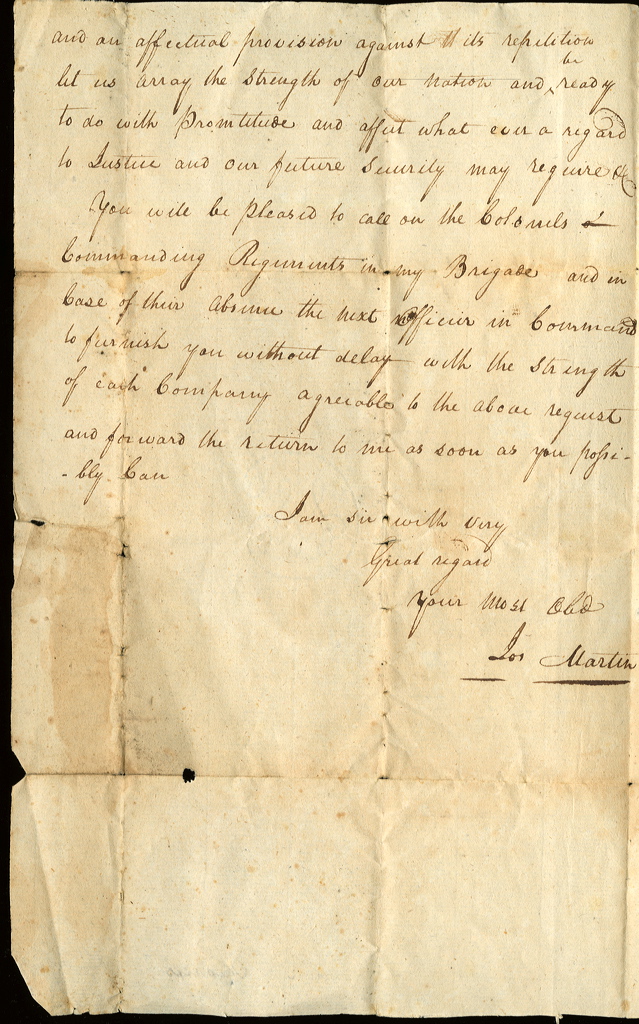 and an affectual provision against its repitition
let us array the Strength of our Nation and be ready
to do with Promtitude and affect what ever a regard
to Justice and our future Security may require &c
You will be pleased to call on the Colonels
Commanding Regiments in my Brigade and in
Case of their absence the next officeir in Command
to furnish you without delay with the Strength
of each Company agreeable to the above request
and forward the return to me as soon as you possi-
-bly Can
I am sir with very
Great regard
Your Most Obd
Jos Martin